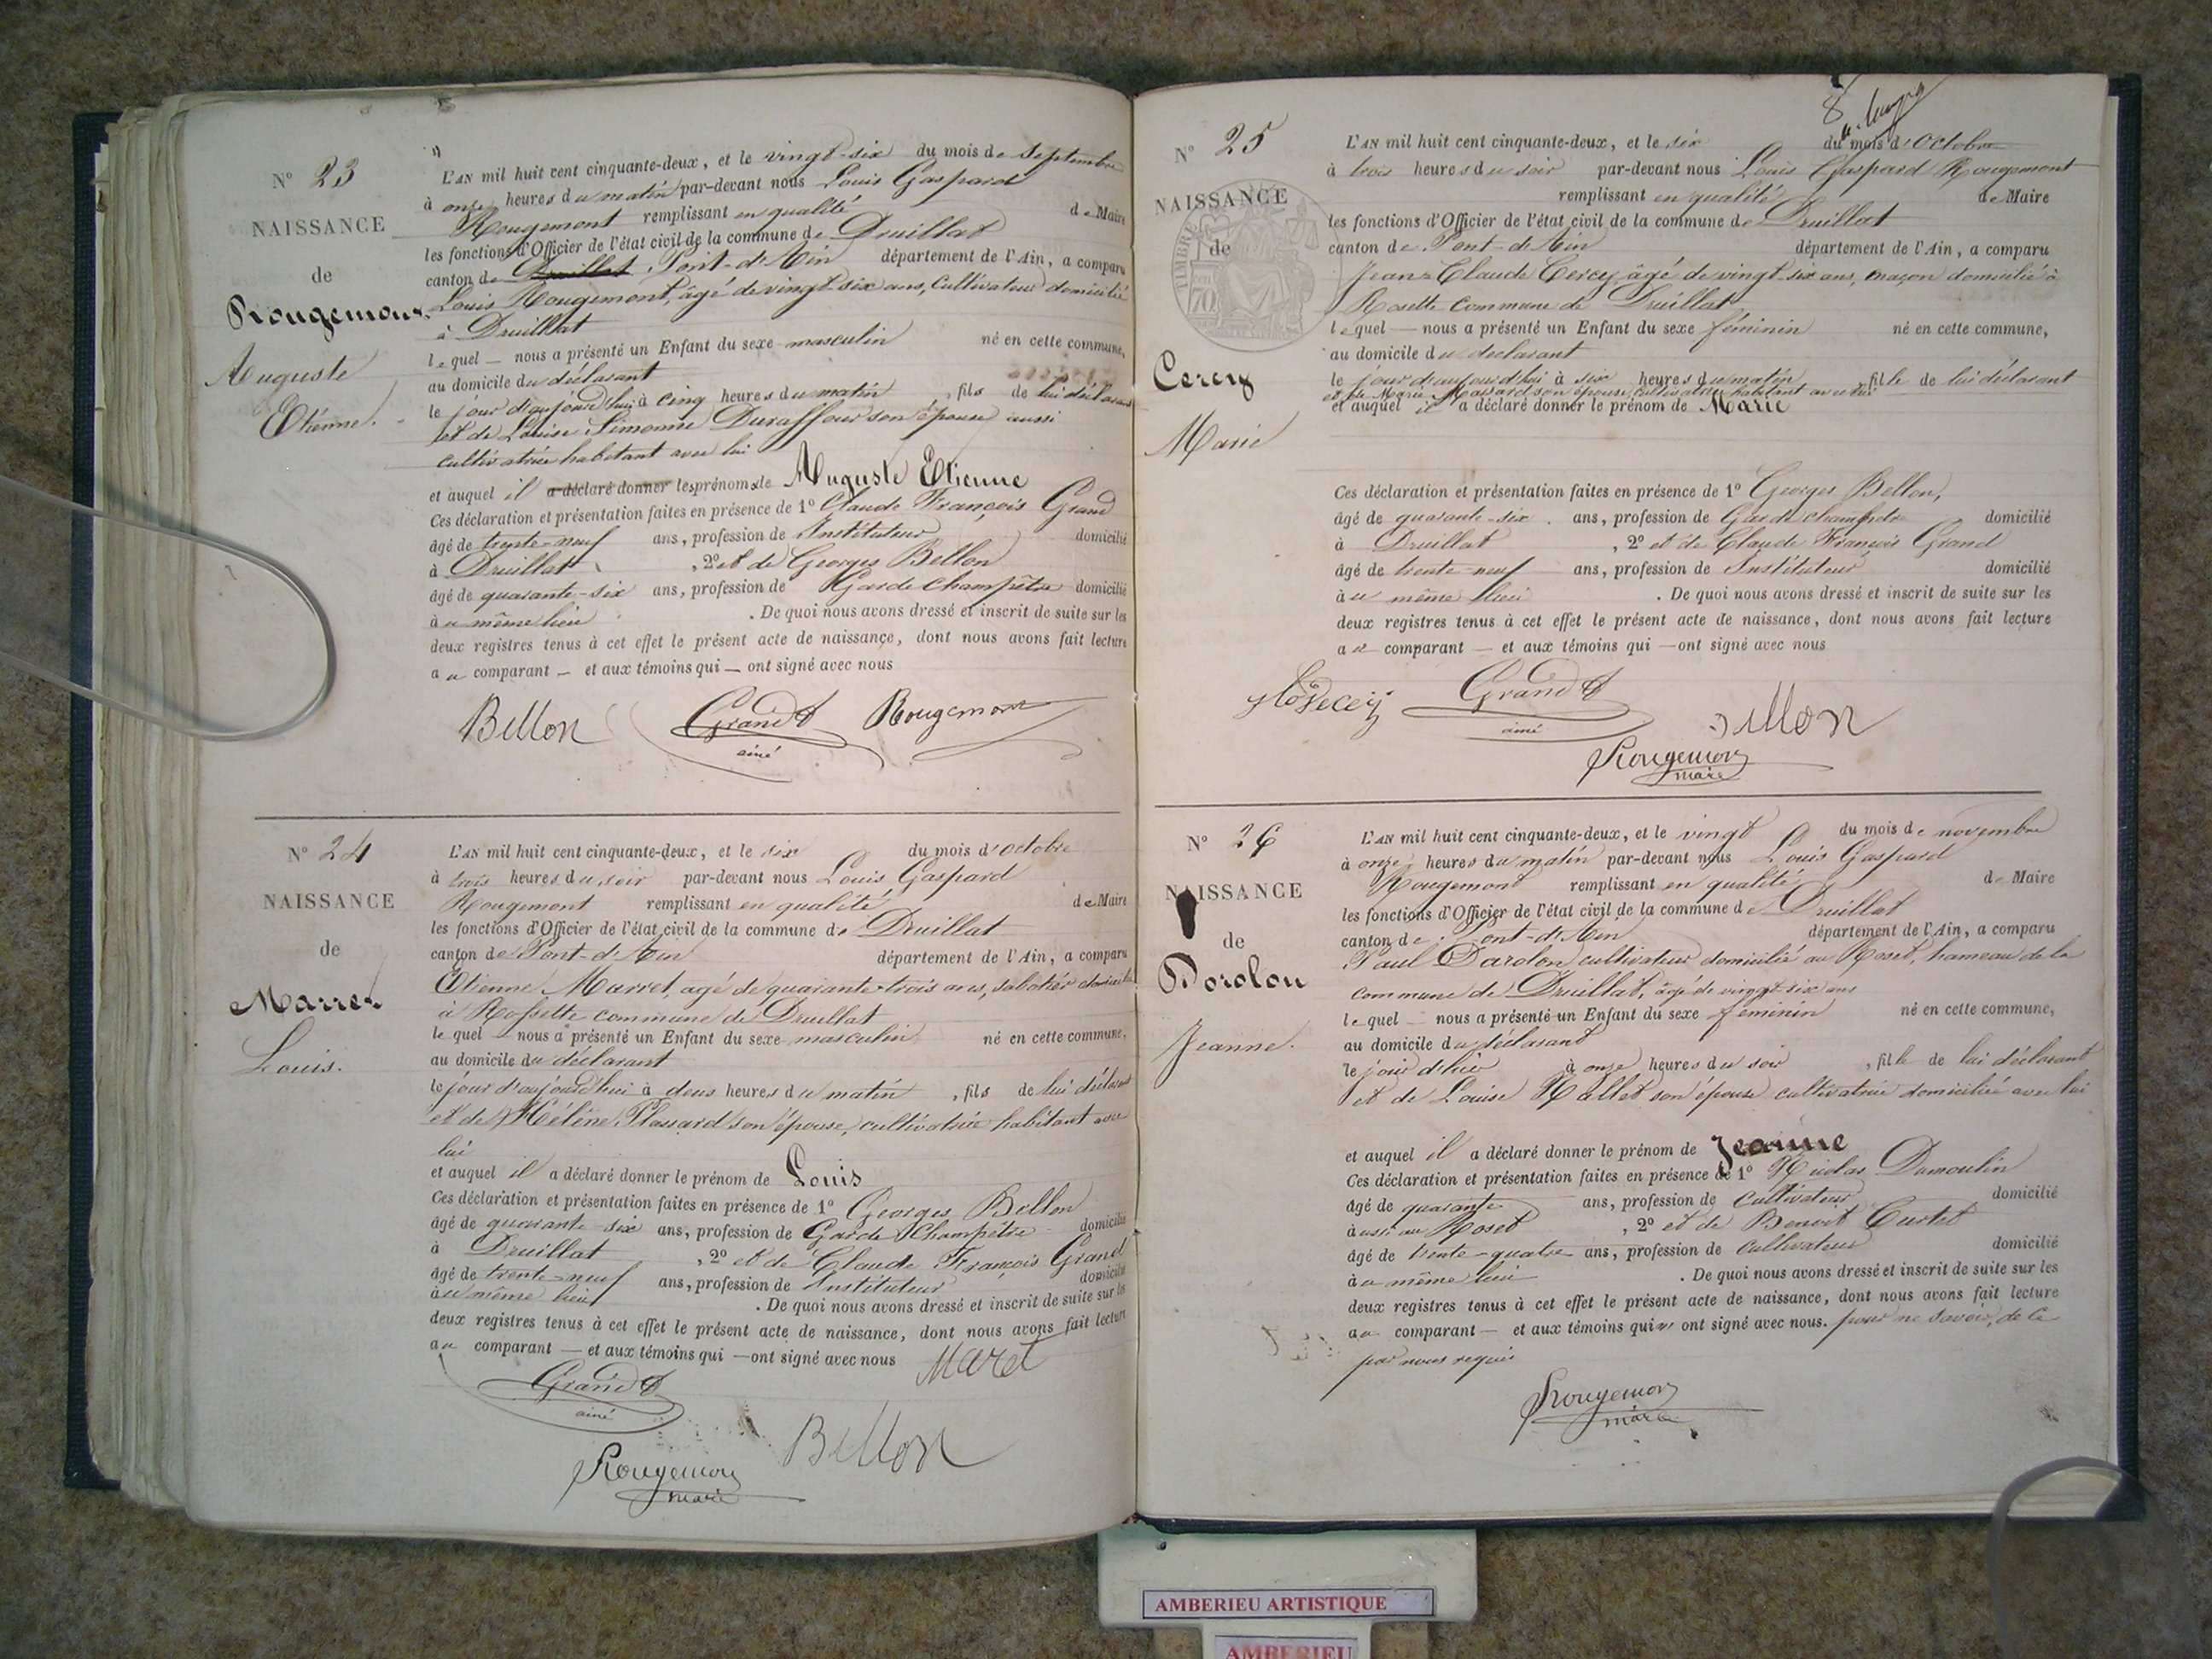 N° 23
NAISSANCE
de
Rougemont
Auguste
Etienne.
L'AN mil huit cent cinquante-deux, et le vingt-six du mois de Septembre
à onze heures du matin par-devant nous Louis Gaspard
Rougemont remplissant en qualité de Maire
les fonctions d'Officier de l'état civil de la commune de Druillat
canton de Druillat Pont-d'Ain département de l'Ain, a comparu
Louis Rougemont, âgé de vingt-six ans, Cultivateur domicilié
à Druillat
lequel — nous a présenté un Enfant du sexe masculin né en cette commune,
au domicile du déclarant
le jour d'aujourd'hui à cinq heures du matin, fils de lui déclarant
et de Louise Simonne Duraffour son épouse aussi
cultivatrice habitant avec lui
et auquel il a déclaré donner les prénoms de Auguste Etienne
Ces déclaration et présentation faites en présence de 1° Claude François Grand
âgé de trente-neuf ans, profession de Instituteur domicilié
à Druillat, 2° et de Georges Bellon
âgé de quarante-six ans, profession de Garde Champêtre domicilié
au même lieu. De quoi nous avons dressé et inscrit de suite sur les
deux registres tenus à cet effet le présent acte de naissance, dont nous avons fait lecture
au comparant — et aux témoins qui — ont signé avec nous
Bellon Grand Rougemont
ainé
N° 24
NAISSANCE
de
Marret
Louis.
L'AN mil huit cent cinquante-deux, et le six du mois d'octobre
à trois heures du soir par-devant nous Louis Gaspard
Rougemont remplissant en qualité de Maire
les fonctions d'Officier de l'état civil de la commune de Druillat
canton de Pont-d'Ain département de l'Ain, a comparu
Etienne Marret, agé de quarante-trois ans, sabotier domicilié
à Rossette commune de Druillat
lequel nous a présenté un Enfant du sexe masculin né en cette commune,
au domicile du déclarant
le jour d'aujourd'hui à deux heures du matin, fils de lui déclarant
et de Hélène Plassard son épouse, cultivatrice habitant avec
lui
et auquel il a déclaré donner le prénom de Louis
Ces déclaration et présentation faites en présence de 1° Georges Bellon
âgé de quarante-six ans, profession de Garde Champêtre domicilié
à Druillat, 2° et de Claude François Grand
âgé de trente-neuf ans, profession de Instituteur domicilié
au même lieu. De quoi nous avons dressé et inscrit de suite sur les
deux registres tenus à cet effet le présent acte de naissance, dont nous avons fait lecture
au comparant — et aux témoins qui — ont signé avec nous Maret
Grand
ainé
Bellon
Rougemont
maire
8
N° 25
NAISSANCE
de
TIMBRE
70
Cercy
Marie
L'AN mil huit cent cinquante-deux, et le six du mois d'Octobre
à trois heures du soir par-devant nous Louis Gaspard Rougemont
remplissant en qualité de Maire
les fonctions d'Officier de l'état civil de la commune de Druillat
canton de Pont-d'Ain département de l'Ain, a comparu
Jean-Claude Cercy, âgé de vingt-six ans, maçon domicilié à
Rosette Commune de Druillat
lequel — nous a présenté un Enfant du sexe féminin né en cette commune,
au domicile du déclarant
le jour d'aujourd'hui à six heures du matin, fille de lui déclarant
et de Marie Massard son épouse, cultivatrice habitant avec lui
et auquel il a déclaré donner le prénom de Marie
Ces déclaration et présentation faites en présence de 1° Georges Bellon,
âgé de quarante-six ans, profession de Garde champêtre domicilié
à Druillat, 2° et de Claude François Grand
âgé de trente-neuf ans, profession de Instituteur domicilié
au même lieu. De quoi nous avons dressé et inscrit de suite sur les
deux registres tenus à cet effet le présent acte de naissance, dont nous avons fait lecture
au comparant — et aux témoins qui — ont signé avec nous
Grand Bellon
ainé
Rougemont
maire
N° 26
NAISSANCE
de
Dorolon
Jeanne.
L'AN mil huit cent cinquante-deux, et le vingt du mois de novembre
à onze heures du matin par-devant nous Louis Gaspard
Rougemont remplissant en qualité de Maire
les fonctions d'Officier de l'état civil de la commune de Druillat
canton de Pont-d'Ain département de l'Ain, a comparu
Paul Darolon cultivateur domicilié au Roset, hameau de la
commune de Druillat, âgé de vingt-six ans
lequel — nous a présenté un Enfant du sexe féminin né en cette commune,
au domicile du déclarant
le jour d'hier à onze heures du soir, fille de lui déclarant
et de Louise Rollet son épouse cultivatrice domiciliée avec lui
et auquel il a déclaré donner le prénom de Jeanne
Ces déclaration et présentation faites en présence de 1° Nicolas Dumoulin
âgé de quarante ans, profession de Cultivateur domicilié
aussi au Roset, 2° et de Benoit Curtet
âgé de trente-quatre ans, profession de cultivateur domicilié
au même lieu. De quoi nous avons dressé et inscrit de suite sur les
deux registres tenus à cet effet le présent acte de naissance, dont nous avons fait lecture
au comparant — et aux témoins qui n' ont signé avec nous. pour ne savoir, de ce
par nous requis
Rougemont
maire
AMBERIEU ARTISTIQUE
AMBERIEU